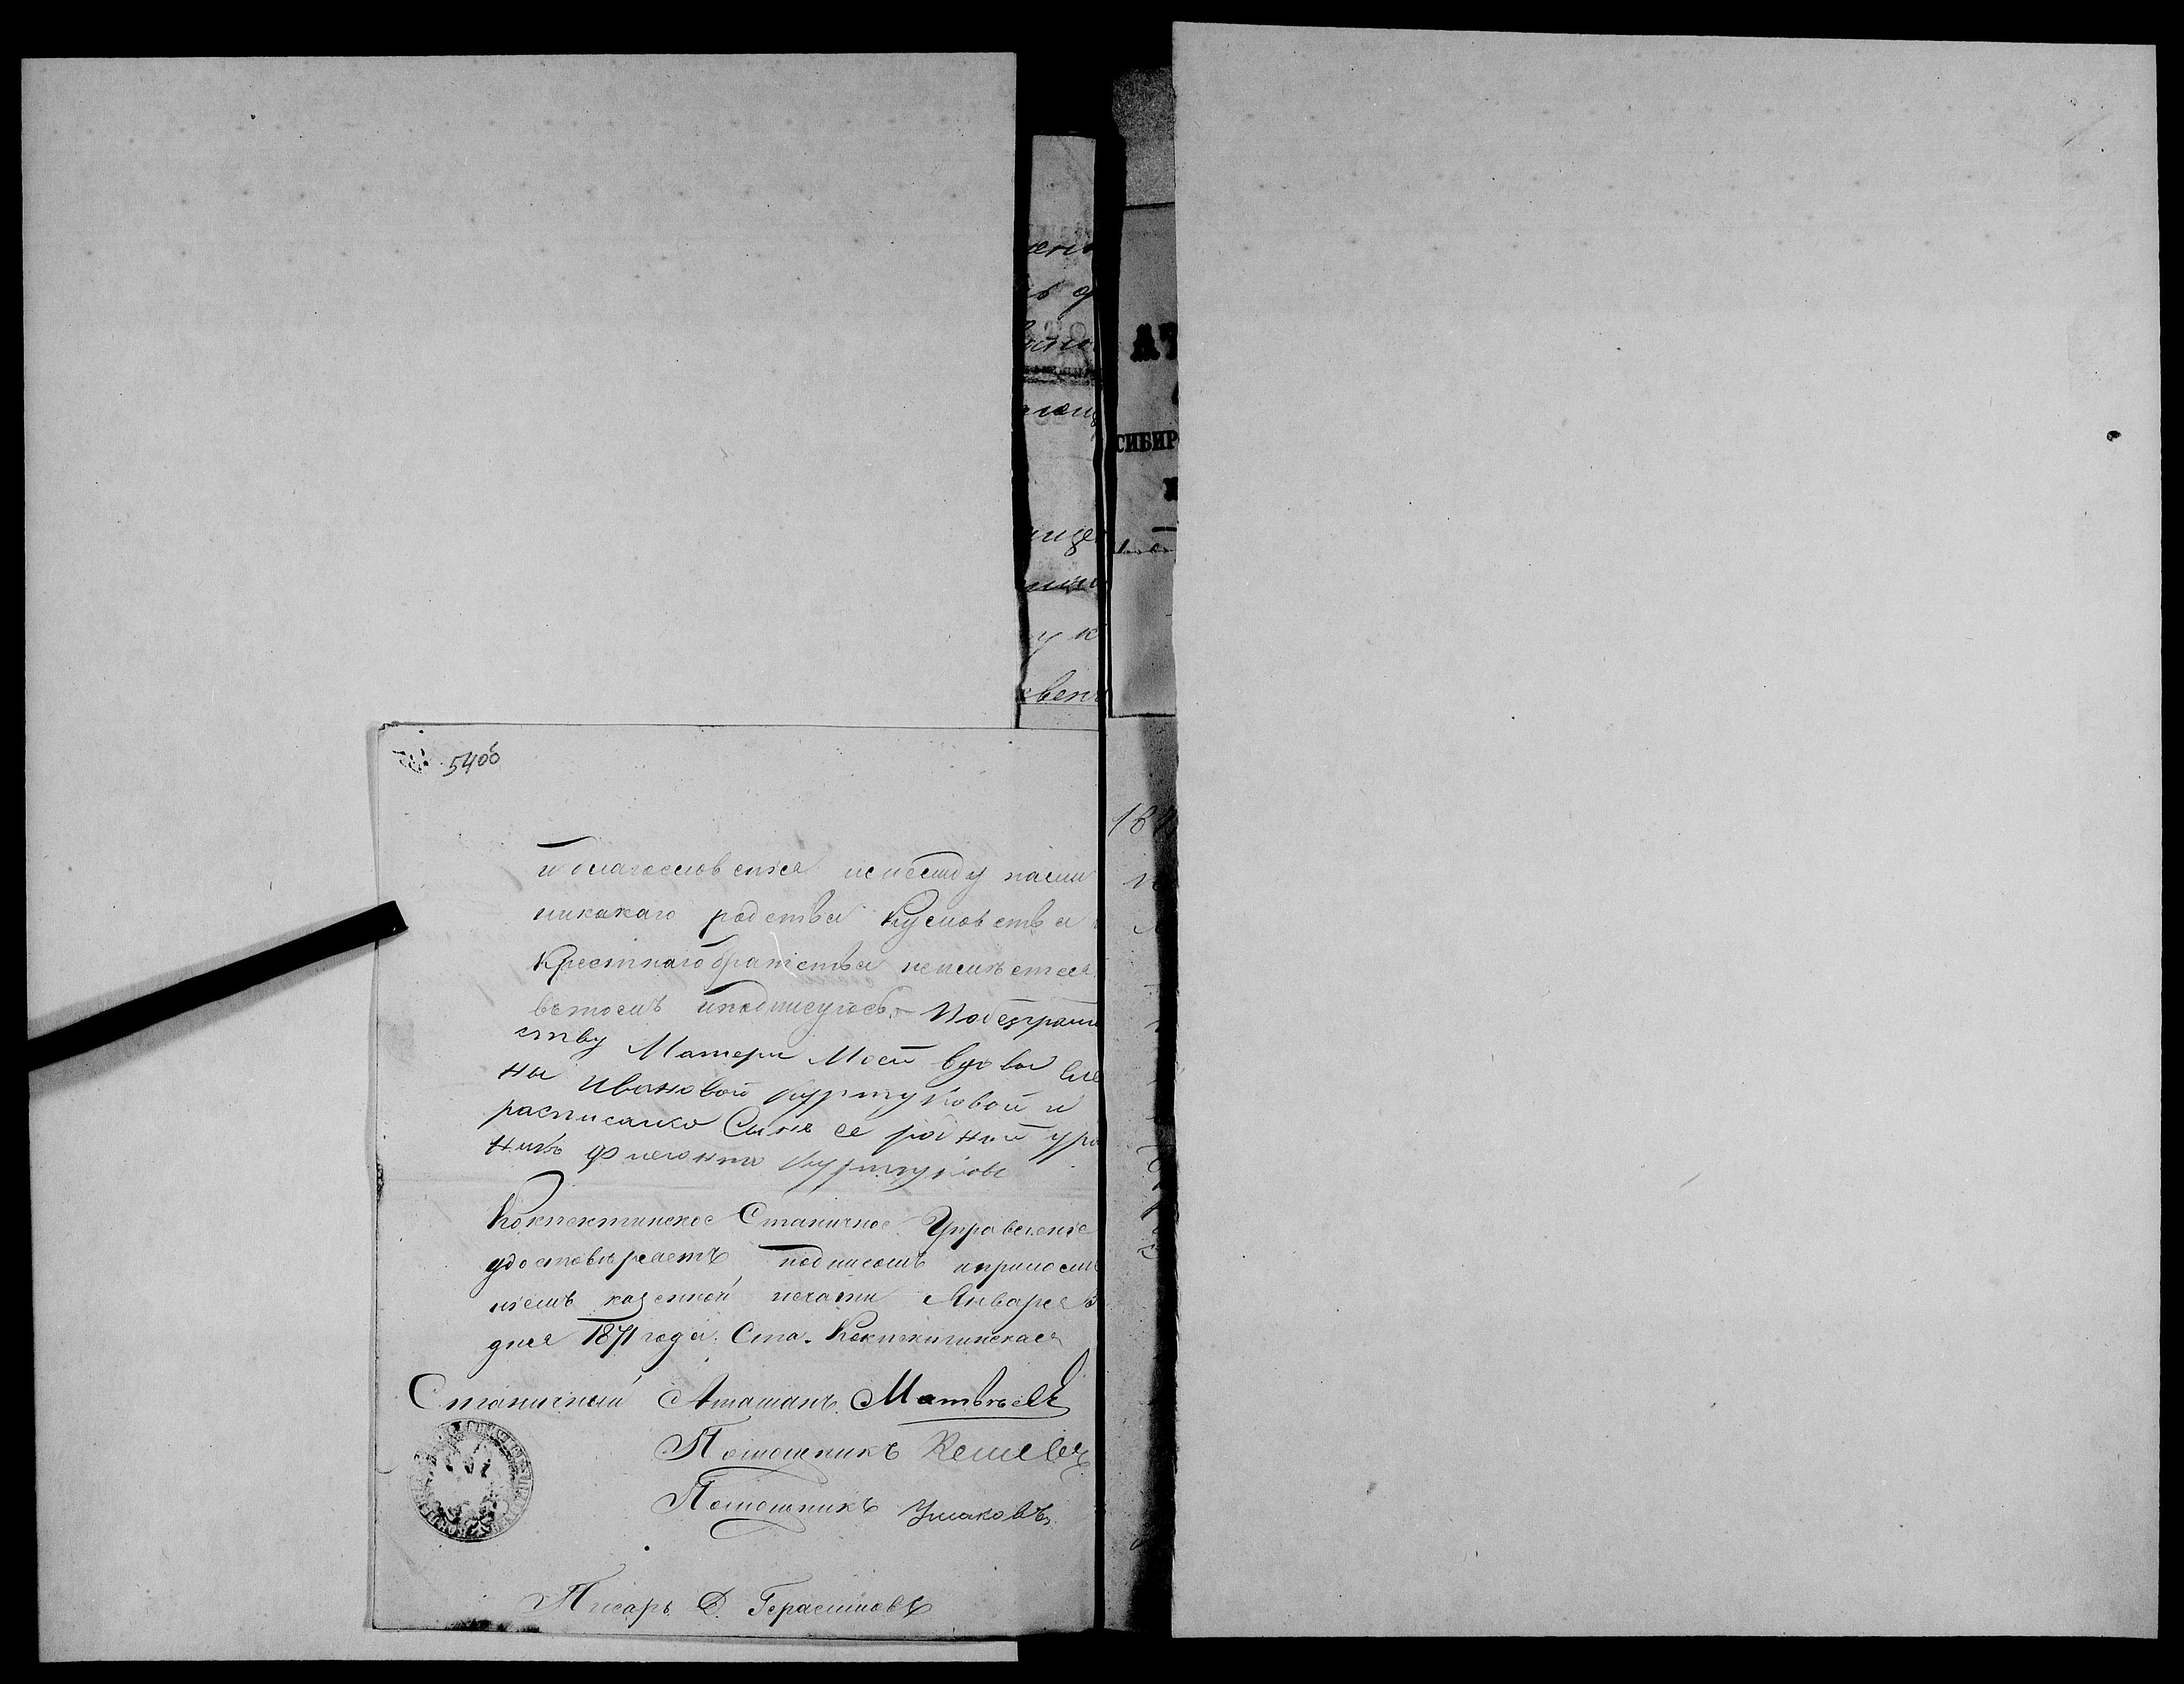 54об
и благословенiя и между нами
никакаго родства кумовства
Крестнаго братства неимѣется
вътомъ иподписуюсь. – Побезграм
ству Матери Моей вдовы Еле
ны Ивановой Куртуковой и
расписалсо Сынъ ее родной уря
никъ Куртуковъ
Кокпектинское Станичное Управленiе
удостовѣряетъ подписомъ иприложе
нiемъ казенной печати Января
дня 1871 года. Ста. Кокпектинская
Станичный Атаманъ Матвѣевъ
Помощникъ
Помощникъ Ушаковъ
Писарь Д. Герасимовъ
АТ
СИБИР